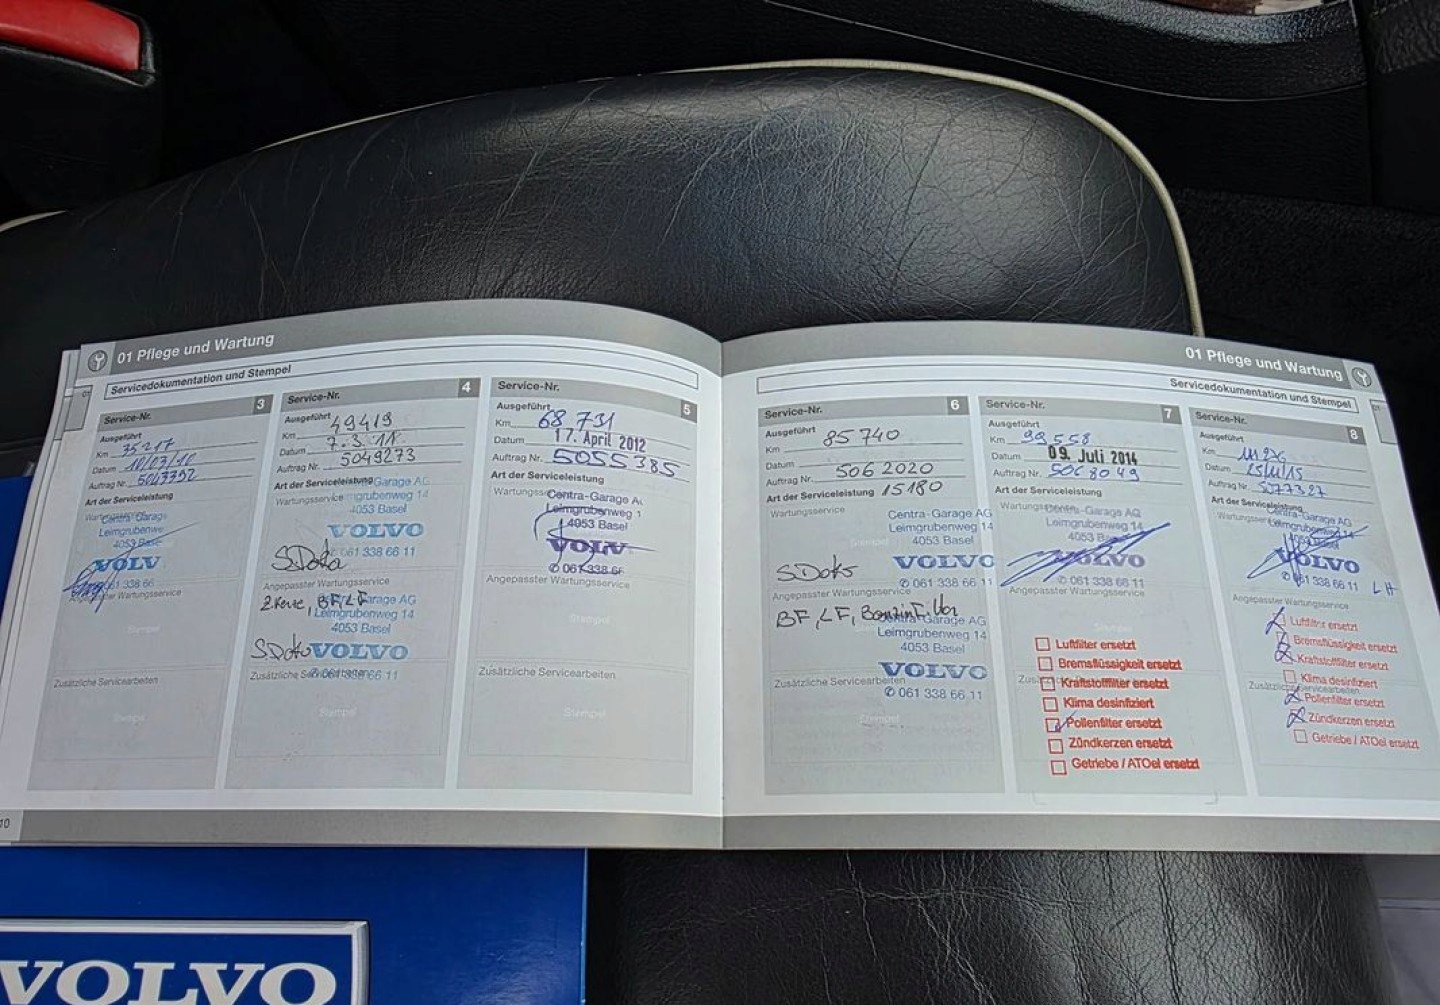 01 Pflege und Wartung
Servicedokumentation und Stempel
Service-Nr. 3
Ausgeführt
Km 35217
Datum 10/03/10
Auftrag Nr.
Art der Serviceleistung
Wartungsservice
Centra-Garage
Leimgrubenwe
4053 Basel
VOLVO
061 338 66
Angepasster Wartungsservice
Stempel
Zusätzliche Servicearbeiten
Stempel
Service-Nr. 4
Ausgeführt
Km 49419
Datum 7.3.11
Auftrag Nr. 5049273
Art der Serviceleistung
Wartungsservice
Garage AG
Leimgrubenweg 14
4053 Basel
VOLVO
061 338 66 11
SDoku
Angepasster Wartungsservice
BF, LF
Garage AG
Leimgrubenweg 14
4053 Basel
SDoku VOLVO
061 338 66 11
Zusätzliche Servicearbeiten
Stempel
Service-Nr. 5
Ausgeführt
Km 68 731
Datum 17. April 2012
Auftrag Nr. 5055385
Art der Serviceleistung
Wartungsservice
Centra-Garage AG
Leimgrubenweg 1
4053 Basel
VOLV
✆ 061 338 66
Angepasster Wartungsservice
Stempel
Zusätzliche Servicearbeiten
Stempel
01 Pflege und Wartung
Servicedokumentation und Stempel
Service-Nr. 6
Ausgeführt
Km 85 740
Datum
Auftrag Nr. 5062020
Art der Serviceleistung 15180
Wartungsservice
Centra-Garage AG
Leimgrubenweg 14
4053 Basel
Stempel
VOLVO
✆ 061 338 66 11
SDoku
Angepasster Wartungsservice
BF, LF,
Centra-Garage AG
Leimgrubenweg 14
4053 Basel
VOLVO
✆ 061 338 66 11
Zusätzliche Servicearbeiten
Stempel
Service-Nr. 7
Ausgeführt
Km 99558
Datum 09. Juli 2014
Auftrag Nr. 5068049
Art der Serviceleistung
Wartungsservice
Centra-Garage AG
Leimgrubenweg 14
4053 Basel
VOLVO
✆ 061 338 66 11
Angepasster Wartungsservice
Stempel
Luftfilter ersetzt
Bremsflüssigkeit ersetzt
Kraftstofffilter ersetzt
Klima desinfiziert
Pollenfilter ersetzt
Zündkerzen ersetzt
Getriebe / ATOel ersetzt
Service-Nr. 8
Ausgeführt
Km
Datum
Auftrag Nr. 5077327
Art der Serviceleistung
Wartungsservice
Centra-Garage AG
Leimgrubenweg 14
4053 Basel
VOLVO
✆ 061 338 66 11
LH
Angepasster Wartungsservice
Luftfilter ersetzt
Bremsflüssigkeit ersetzt
Kraftstofffilter ersetzt
Klima desinfiziert
Zusätzliche Servicearbeiten
Pollenfilter ersetzt
Zündkerzen ersetzt
Getriebe / ATOel ersetzt
10
VOLVO